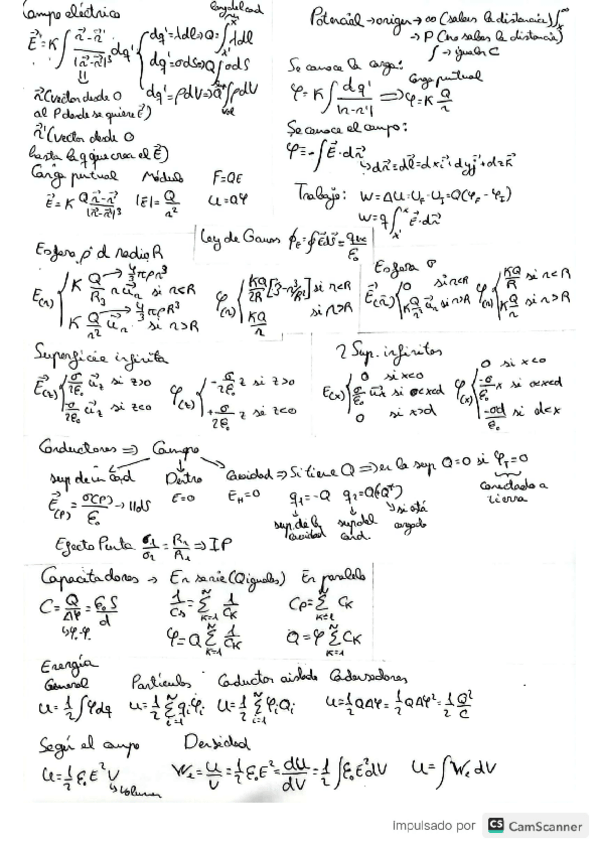 Campo eléctrico
long del cond
E⃗ = K ∫ (r⃗ - r⃗')/|r⃗ - r⃗'|³ dq'
dq' = λdl ⇒ Q = ∫ λdl
dq' = σdS ⇒ Q ∫ σdS
dq' = ρdV ⇒ Q ∫ρdV
r⃗ (vector desde O
al P donde se quiere E⃗)
r⃗' (vector desde O
hasta la q que crea el E⃗)
Carga puntual Módulo F=QE
E⃗ = K Q (r⃗ - r⃗')/|r⃗ - r⃗'|³ |E| = Q/r² U = Qφ
Potencial → origen → ∞ (sabes la distancia)
→ P (no sabes la distancia)
∫ → igual C
Se conoce la carga:
Carga puntual
φ = K ∫ dq'/|r - r'| ⇒ φ = K Q/r
Se conoce el campo:
φ = -∫ E⃗ · dr⃗
Trabajo: W = ΔU = U_F - U_I = Q(φ_F - φ_I)
W = q ∫ E⃗ · dr⃗
Ley de Gauss φ_E = ∮ E⃗ dS⃗ = q_enc/ε₀
Esfera ρ d radio R
E(r) { K Q/R³ r u⃗r si r<R
K Q/r² u⃗r si r>R
4/3 πρr³
4/3 πρR³
φ(r) { KQ/2R [3 - r²/R²] si r<R
KQ/r si r>R
Esfera σ
E⃗(r) { 0 si r<R
K Q/r² u⃗r si r>R
φ(r) { KQ/R si r<R
K Q/r si r>R
Superficie infinita
E⃗(z) { σ/2ε₀ u⃗z si z>0
-σ/2ε₀ u⃗z si z<0
φ(z) { -σ/2ε₀ z si z>0
+σ/2ε₀ z si z<0
2 Sup. infinitas
E(x) { 0 si x<0
σ/ε₀ u⃗x si 0<x<d
0 si x>d
φ(x) { 0 si x<0
-σ/ε₀ x si 0<x<d
-σd/ε₀ si d<x
Conductores ⇒ Campo
sup de un cond Dentro Cavidad ⇒ Si tiene Q ⇒ en la sup Q=0 si φ_T=0
E⃗(P) = σ(P)/ε₀ → 11dS E=0 E_H=0 q₁=-Q q₂=Q(Q*) conectado a
tierra
sup. de la
cavidad
sup del
cond.
si está
cargado
Efecto Punta σ₁/σ₂ = R₂/R₁ ⇒ IP
Capacitadores → En serie (Q iguales) En paralelo
C = Q/Δφ = ε₀S/d 1/Cs = Σ 1/C_K Cp = Σ C_K
φ = Q Σ 1/C_K Q = φ Σ C_K
Energía
General Partículas Conductor aislado Condensadores
U = 1/2 ∫ φdq U = 1/2 Σ qᵢφᵢ U = 1/2 Σ φᵢQᵢ U = 1/2 QΔφ = 1/2 QΔφ² = 1/2 Q²/C
Según el campo Densidad
U = 1/2 ε₀E²V W_e = U/V = 1/2 ε₀E² = dU/dV = 1/2 ∫ε₀E²dV U = ∫W_e dV
Volumen
Impulsado por CS CamScanner